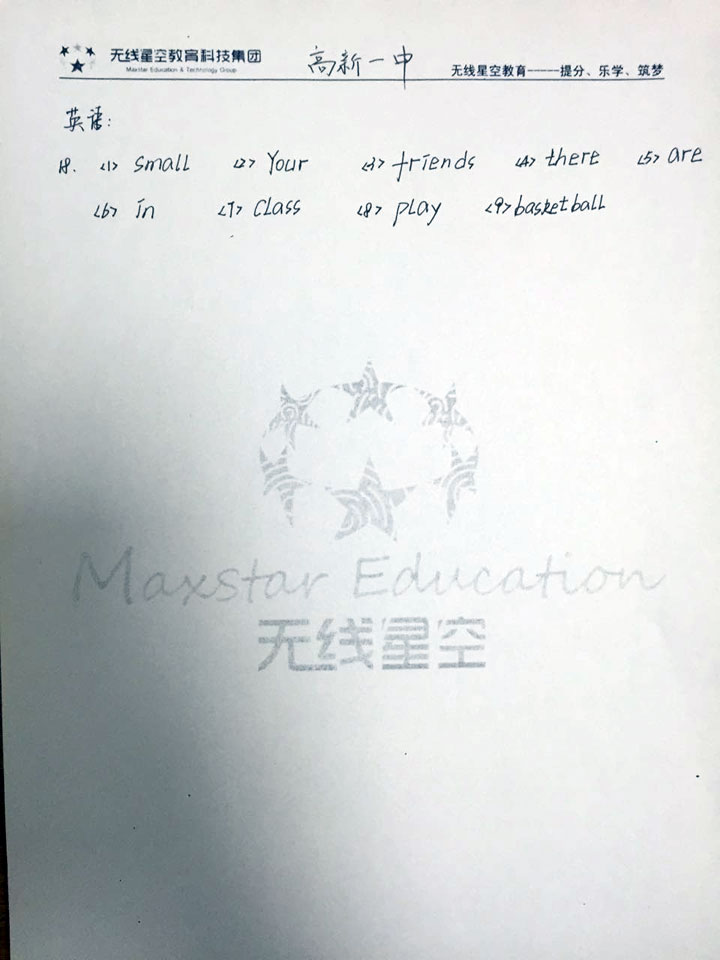 无线星空教育科技集团
Maxstar Education & Technology Group
高新一中
无线星空教育——提分、乐学、筑梦
英语:
18. <1> small <2> Your <3> friends <4> there <5> are
<6> in <7> class <8> play <9> basketball
Maxstar Education
无线星空